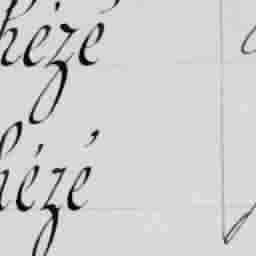 hézé
hézé